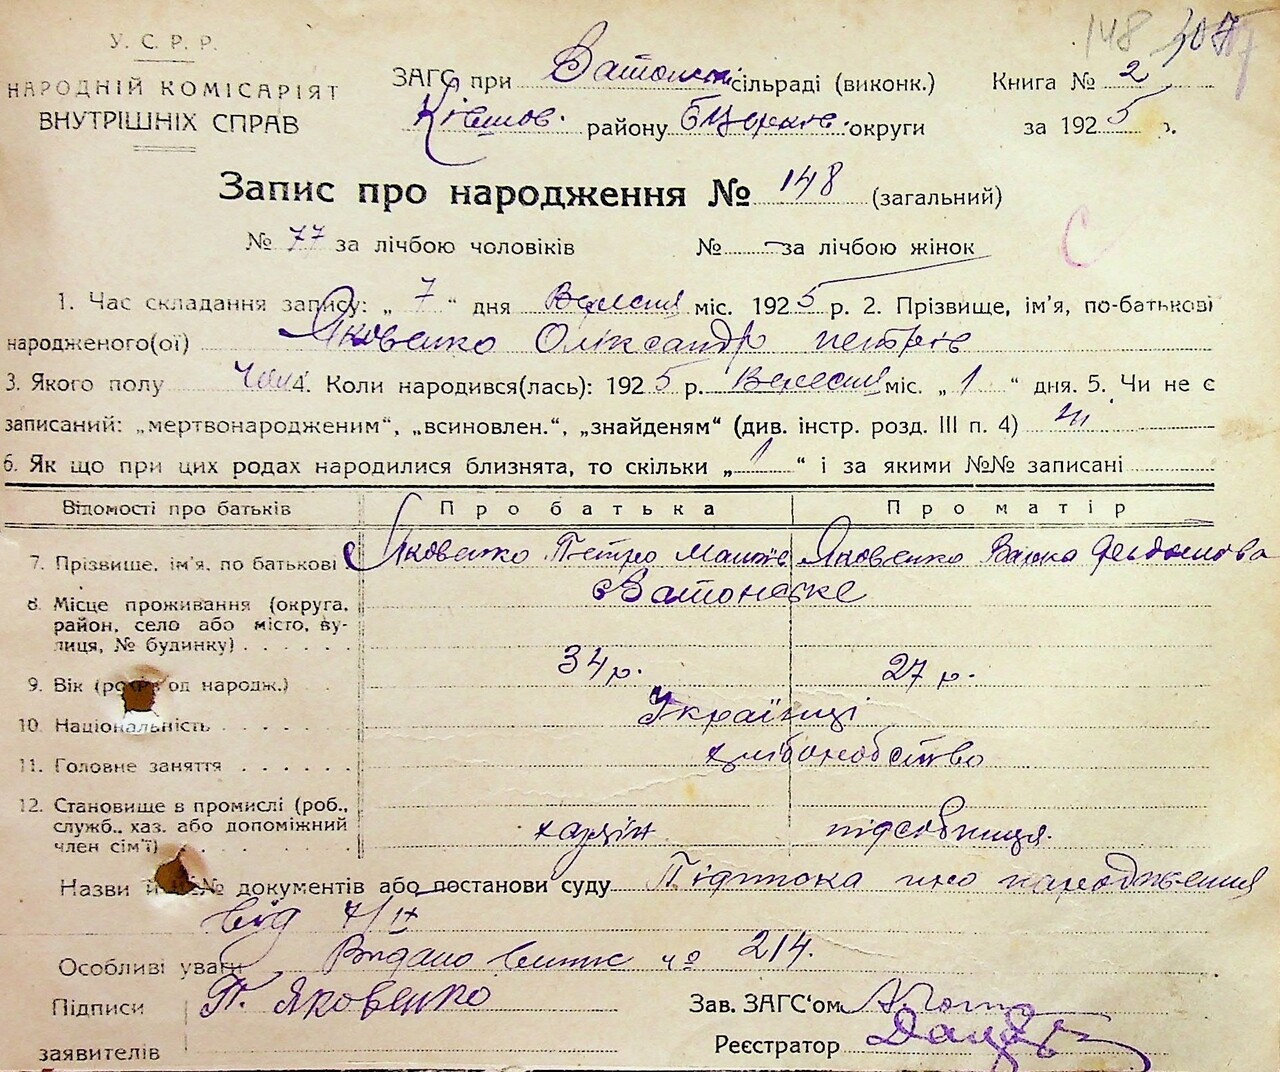 148 107
У. С. Р. Р.
НАРОДНІЙ КОМІСАРІЯТ
ВНУТРІШНІХ СПРАВ
ЗАГС при Ватонськ сільраді (виконк.) Книга № 2
району БЦерків. округи за 1925 р.
Запис про народження № 148 (загальний)
№ 77 за лічбою чоловіків № — за лічбою жінок
С
1. Час складання запису: „ 7 “ дня Вересня міс. 1925 р. 2. Прізвище, ім'я, по-батькові
народженого(ої) Яковенко Оліксандр петрів
3. Якого полу чол 4. Коли народився(лась): 1925 р. Вересня міс. „ 1 “ дня. 5. Чи не є
записаний: „мертвонародженим“, „всиновлен.“, „знайденям“ (див. інстр. розд. III п. 4) ні
6. Як що при цих родах народилися близнята, то скільки „ 1 “ і за якими №№ записані
Відомості про батьків Про батька Про матір
7. Прізвище, ім'я, по батькові Яковенко Петро Яковенко
8. Місце проживання (округа, с Ватонське
район, село або місто, ву-
лиця, № будинку)
9. Вік (років од народж.) 34 р. 27 р.
10. Національність Українці
11. Головне заняття хліборобство
12. Становище в промислі (роб.,
служб., хаз. або допоміжний
член сім'ї) хазяїн підсобниця.
Назви й №№ документів або постанови суду Підписка про народження
від 7/IX
Особливі уваги Видано витяг ч° 214.
Підписи П. Яковенко Зав. ЗАГС'ом
заявителів Реєстратор